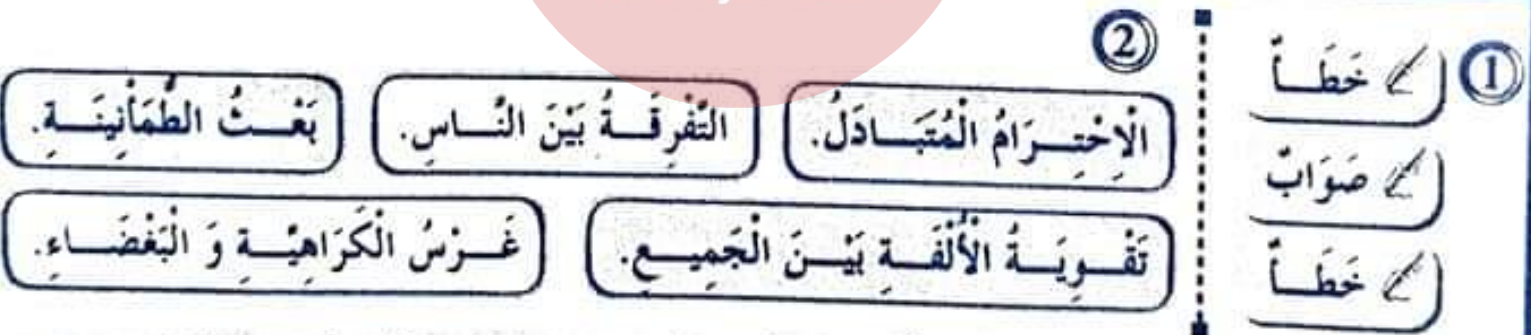 ① خَطَـأٌ
صَوَابٌ
خَطَـأٌ
②
الْاِحْتِـرَامُ الْمُتَبَـادَلُ. التَّفْرِقَـةُ بَيْنَ النَّـاسِ. بَعْـثُ الطُّمَأْنِينَـةِ.
تَقْـوِيَـةُ الْأُلْفَـةِ بَيْـنَ الْجَمِيـعِ. غَـرْسُ الْكَرَاهِيَّـةِ وَ الْبَغْضَـاءِ.